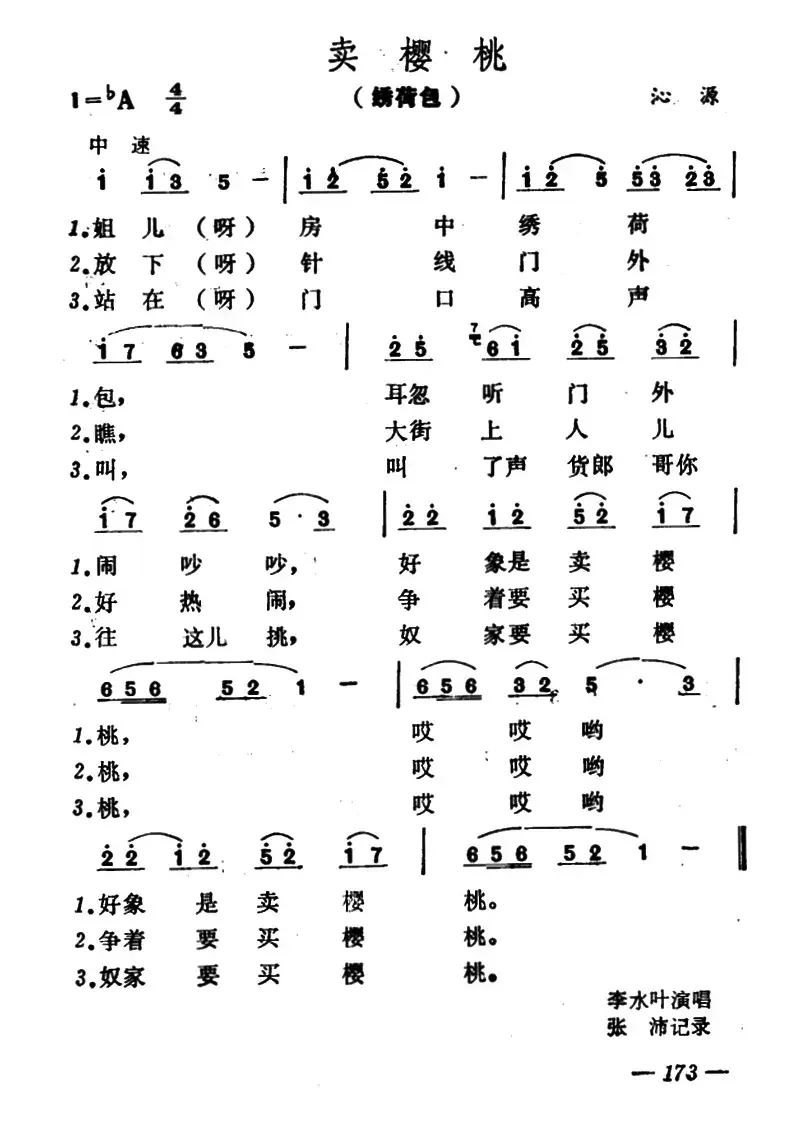 卖樱桃
1=♭A 4/4 （绣荷包） 沁源
中速
i i3 5 - | i2 52 i - | i2 5 53 23 |
1.姐儿（呀）房中绣荷
2.放下（呀）针线门外
3.站在（呀）门口高声
i7 63 5 - | 25 7 6i 25 32 |
1.包，耳忽听门外
2.瞧，大街上人儿
3.叫，叫了声货郎哥你
i7 26 5·3 | 22 i2 52 i7 |
1.闹吵吵，好象是卖樱
2.好热闹，争着要买樱
3.往这儿挑，奴家要买樱
656 521 - | 656 32 5·3 |
1.桃，哎哎哟
2.桃，哎哎哟
3.桃，哎哎哟
22 i2 52 i7 | 656 52 1 - ‖
1.好象是卖樱桃。
2.争着要买樱桃。
3.奴家要买樱桃。
李水叶演唱
张沛记录
— 173 —